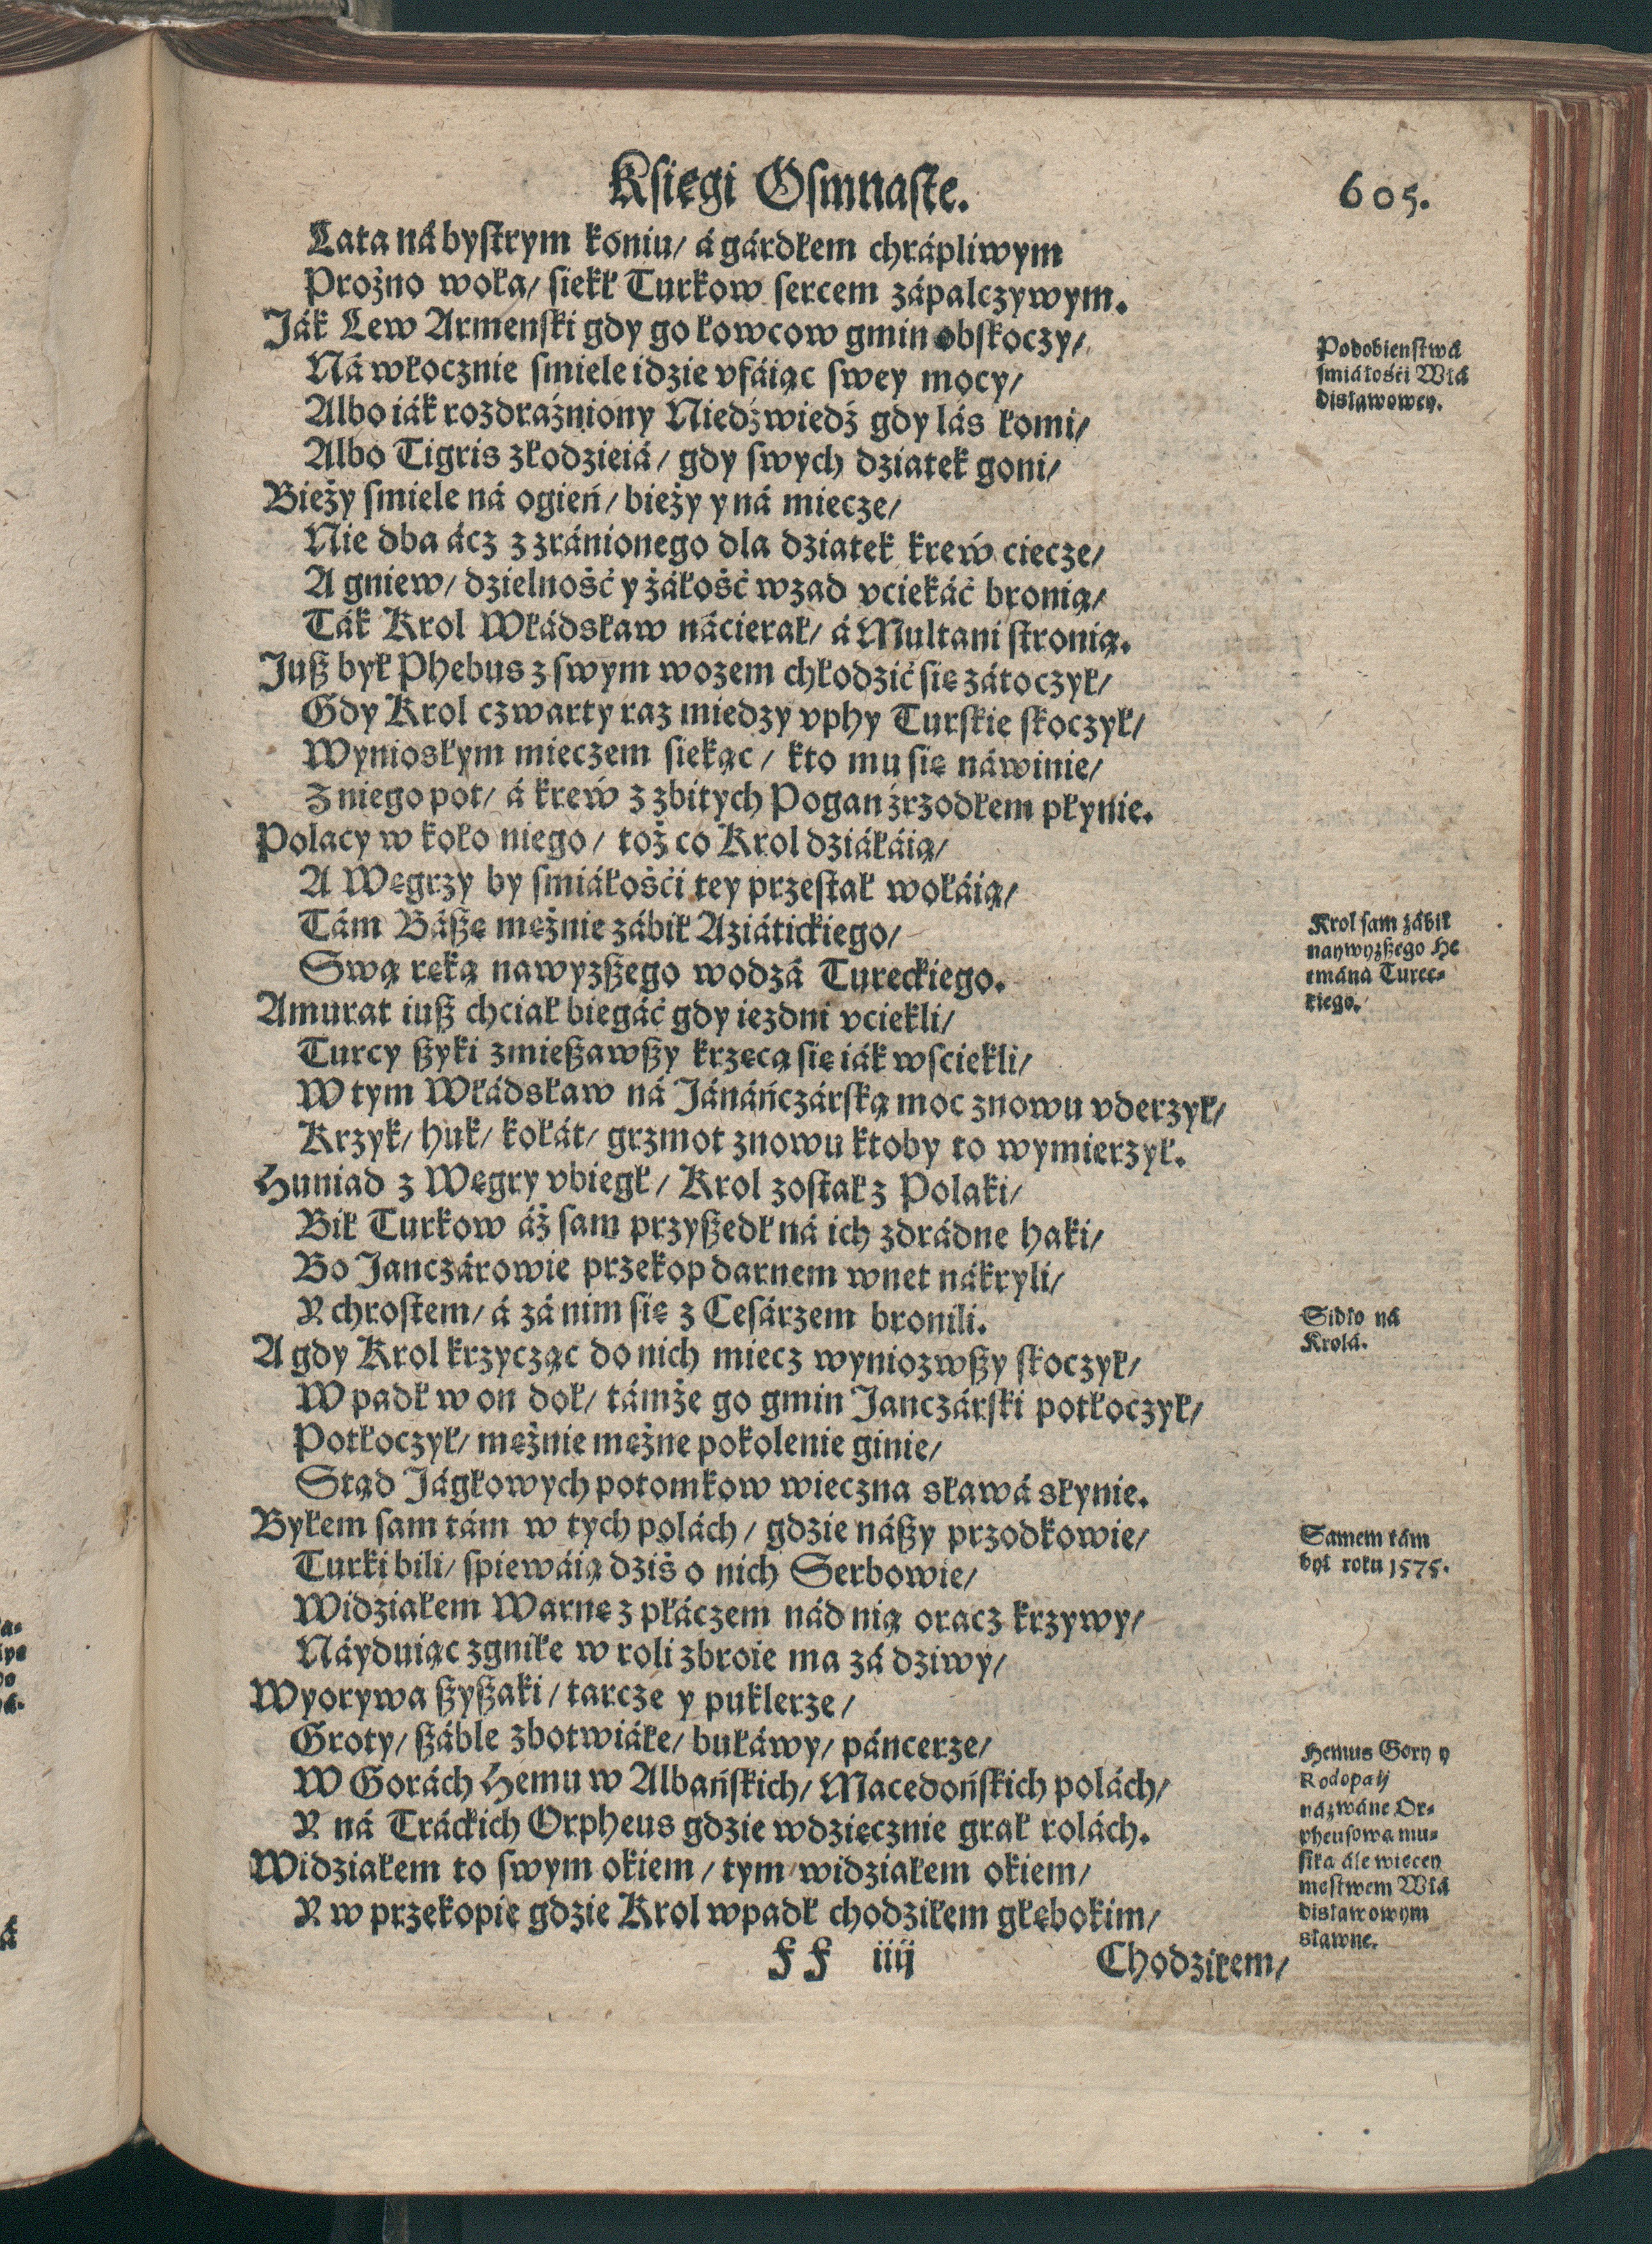 Księgi Osmnaste.
605.
Lata ná bystrym koniu/ á gárdłem chrápliwym
Prożno woła/ siekł Turkow sercem zápalczywym.
Ják Lew Armenski gdy go łowcow gmin obskoczy/
Ná włocznie smiele idzie vfáiąc swey mocy/
Albo iák rozdraźniony Niedźwiedź gdy lás łomi/
Albo Tigris złodzieiá/ gdy swych dziatek goni/
Bieży smiele ná ogień/ bieży y ná miecze/
Nie dba ácz z zránionego dla dziatek krew ciecze/
A gniew/ dzielność y żáłość wzad vciekáć bronią/
Ták Krol Włádsław nácierał/ á Multani stronią.
Juß był Phebus z swym wozem chłodzić się zátoczył/
Gdy Krol czwarty raz miedzy vphy Turskie skoczył/
Wyniosłym mieczem siekąc/ kto mu się náwinie/
Z niego pot/ á krew z zbitych Pogan źrzodłem płynie.
Polacy w koło niego/ toż co Krol dziáłáią/
A Węgrzy by smiáłośći tey przestał wołáią/
Tám Báßę mężnie zábił Aziátickiego/
Swą ręką nawyzßego wodzá Tureckiego.
Amurat iuß chciał biegáć gdy iezdni vciekli/
Turcy ßyki zmießawßy krzęcą się iák wsciekli/
W tym Włádsław ná Jánáńczárską moc znowu vderzył/
Krzyk/ huk/ kołát/ grzmot znowu ktoby to wymierzył.
Huniad z Węgry vbiegł/ Krol został z Polaki/
Bił Turkow áż sam przyßedł ná ich zdrádne haki/
Bo Janczárowie przekop darnem wnet nákryli/
Y chrostem/ á zá nim się z Cesárzem bronili.
A gdy Krol krzycząc do nich miecz wyniozwßy skoczył/
W padł w on doł/ támże go gmin Janczárski potłoczył/
Potłoczył/ mężnie mężne pokolenie ginie/
Stąd Jágłowych potomkow wieczna sławá słynie.
Byłem sam tám w tych polách/ gdzie náßy przodkowie/
Turki bili/ spiewáią dziś o nich Serbowie/
Widziałem Warnę z płáczem nád nią oracz krzywy/
Náyduiąc zgniłe w roli zbroie ma zá dziwy/
Wyorywa ßyßaki/ tarcze y puklerze/
Groty/ ßáble zbotwiáłe/ bułáwy/ páncerze/
W Gorách Hemu w Albańskich/ Macedońskich polách/
Y ná Tráckich Orpheus gdzie wdzięcznie grał rolách.
Widziałem to swym okiem/ tym widziałem okiem/
Y w przekopie gdzie Krol wpadł chodziłem głębokim/
FF iiij
Chodziłem/
Podobieństwá
smiáłośći Włá
disławowey.
Krol sam zábił
naywyzßego He
tmáná Turec-
kiego.
Sidło ná
Krolá.
Samem tám
był roku 1575.
Hemus Gory y
Rodopaij
názwáne Or-
pheusowa mu-
sika ále wiecey
męstwem Włá
disławowym
sławne.